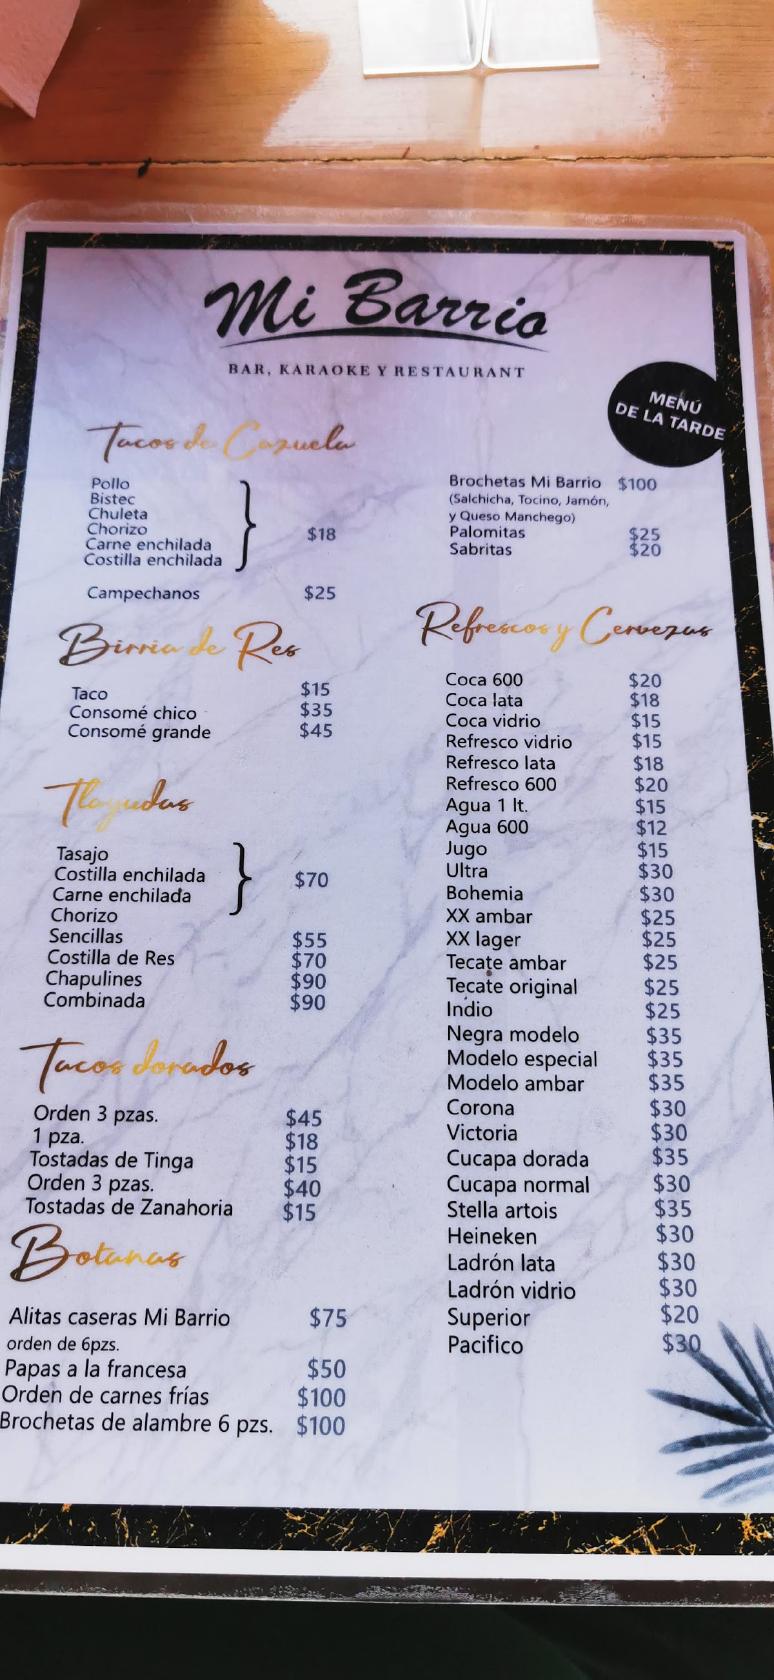 Mi Barrio
BAR, KARAOKE Y RESTAURANT
MENÚ
DE LA TARDE
Tacos de Cazuela
Pollo
Bistec
Chuleta
Chorizo $18
Carne enchilada
Costilla enchilada
Campechanos $25
Birria de Res
Taco $15
Consomé chico $35
Consomé grande $45
Tlayudas
Tasajo
Costilla enchilada $70
Carne enchilada
Chorizo
Sencillas $55
Costilla de Res $70
Chapulines $90
Combinada $90
Tacos dorados
Orden 3 pzas. $45
1 pza. $18
Tostadas de Tinga $15
Orden 3 pzas. $40
Tostadas de Zanahoria $15
Botanas
Alitas caseras Mi Barrio $75
orden de 6pzs.
Papas a la francesa $50
Orden de carnes frías $100
Brochetas de alambre 6 pzs. $100
Brochetas Mi Barrio $100
(Salchicha, Tocino, Jamón,
y Queso Manchego)
Palomitas $25
Sabritas $20
Refrescos y Cervezas
Coca 600 $20
Coca lata $18
Coca vidrio $15
Refresco vidrio $15
Refresco lata $18
Refresco 600 $20
Agua 1 lt. $15
Agua 600 $12
Jugo $15
Ultra $30
Bohemia $30
XX ambar $25
XX lager $25
Tecate ambar $25
Tecate original $25
Indio $25
Negra modelo $35
Modelo especial $35
Modelo ambar $35
Corona $30
Victoria $30
Cucapa dorada $35
Cucapa normal $30
Stella artois $35
Heineken $30
Ladrón lata $30
Ladrón vidrio $30
Superior $20
Pacifico $30